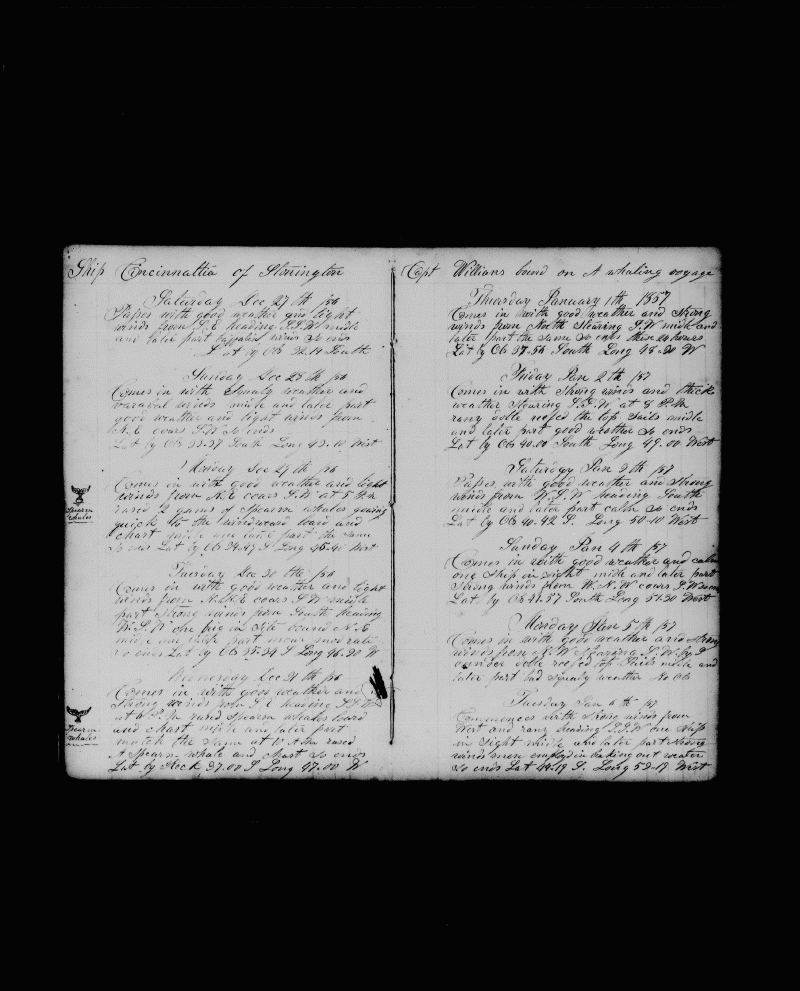 Ship Cincinnattia of Stonington
Saturday Dec 27th /56
Passes with good weather and light
winds from S.E heading S.S.W midle
and later part winds So ends
Lat by Ob 32.11 South
Sunday Dec 28th /56
Comes in with Squaly weather and
winds midle and later part
good weather and light winds from
N.E cours S.W So ends
Lat by Ob 33.37 South Long 43.10 West
Monday Dec 29th /56
Comes in with good weather and light
winds from N.E cours S.W at 5 P.M
raised 2 gams of Spearm whales going
quick to the windward loard and
chast midle and later part the Same
So ends Lat by Ob 34.47 S Long 45.40 West
Spearm
whales
Tuesday Dec 30th /56
Comes in with good weather and light
winds from N.N.E cours S.W midle
part Strong winds from South heading
W.S.W one brig in Site bound N.E
midle and later part more moderate
So ends Lat by Ob 35.34 S Long 46.20 W
Wednesday Dec 31th /56
Comes in with good weather and
Strong winds from S.E heading S.S.W
at 6 P.M raised Spearm whales loard
and chast midle and later part
much the Same at 10 A.M raised
A Spearm whale and chast So ends
Lat by Reck 37.00 S Long 47.00 W
Spearm
whales
Capt Willians bound on A whaling voyage
Thursday January 1th, 1857
Comes in with good weather and Strong
winds from North Stearing S.W midle and
later part the Same So ends these 24 hours
Lat by Ob 37.56 South Long 48.20 W
Friday Jan 2th /57
Comes in with Strong winds and thick
weather Stearing S.S.W at 8 P.M
ranz doble reefed top Sails midle
and later part good weather So ends
Lat by Ob 40.00 South Long 49.00 West
Saturday Jan 3th /57
Passes with good weather and Strong
winds from W.S.W heading South
midle and later part calm So ends
Lat by Ob 40.42 S. Long 50.10 West
Sunday Jan 4th /57
Comes in with good weather and calm
one Ship in Sight midle and later part
Strong winds from W.N.W cours S.W
Lat. by Ob 41.57 South Long 51.20 West
Monday Jan 5th /57
Comes in with good weather and Strong
winds from N.W Stearing S.W. by S
ounder doble reefed top Sails midle and
later part bad Squaly weather No Ob
Tuesday Jan 6th /57
Commences with Strong winds from
West and ranz heading S.S.W one Ship
in Sight midle and later part
winds men employed in braking out water
So ends Lat 44.19 S. Long 52.19 West